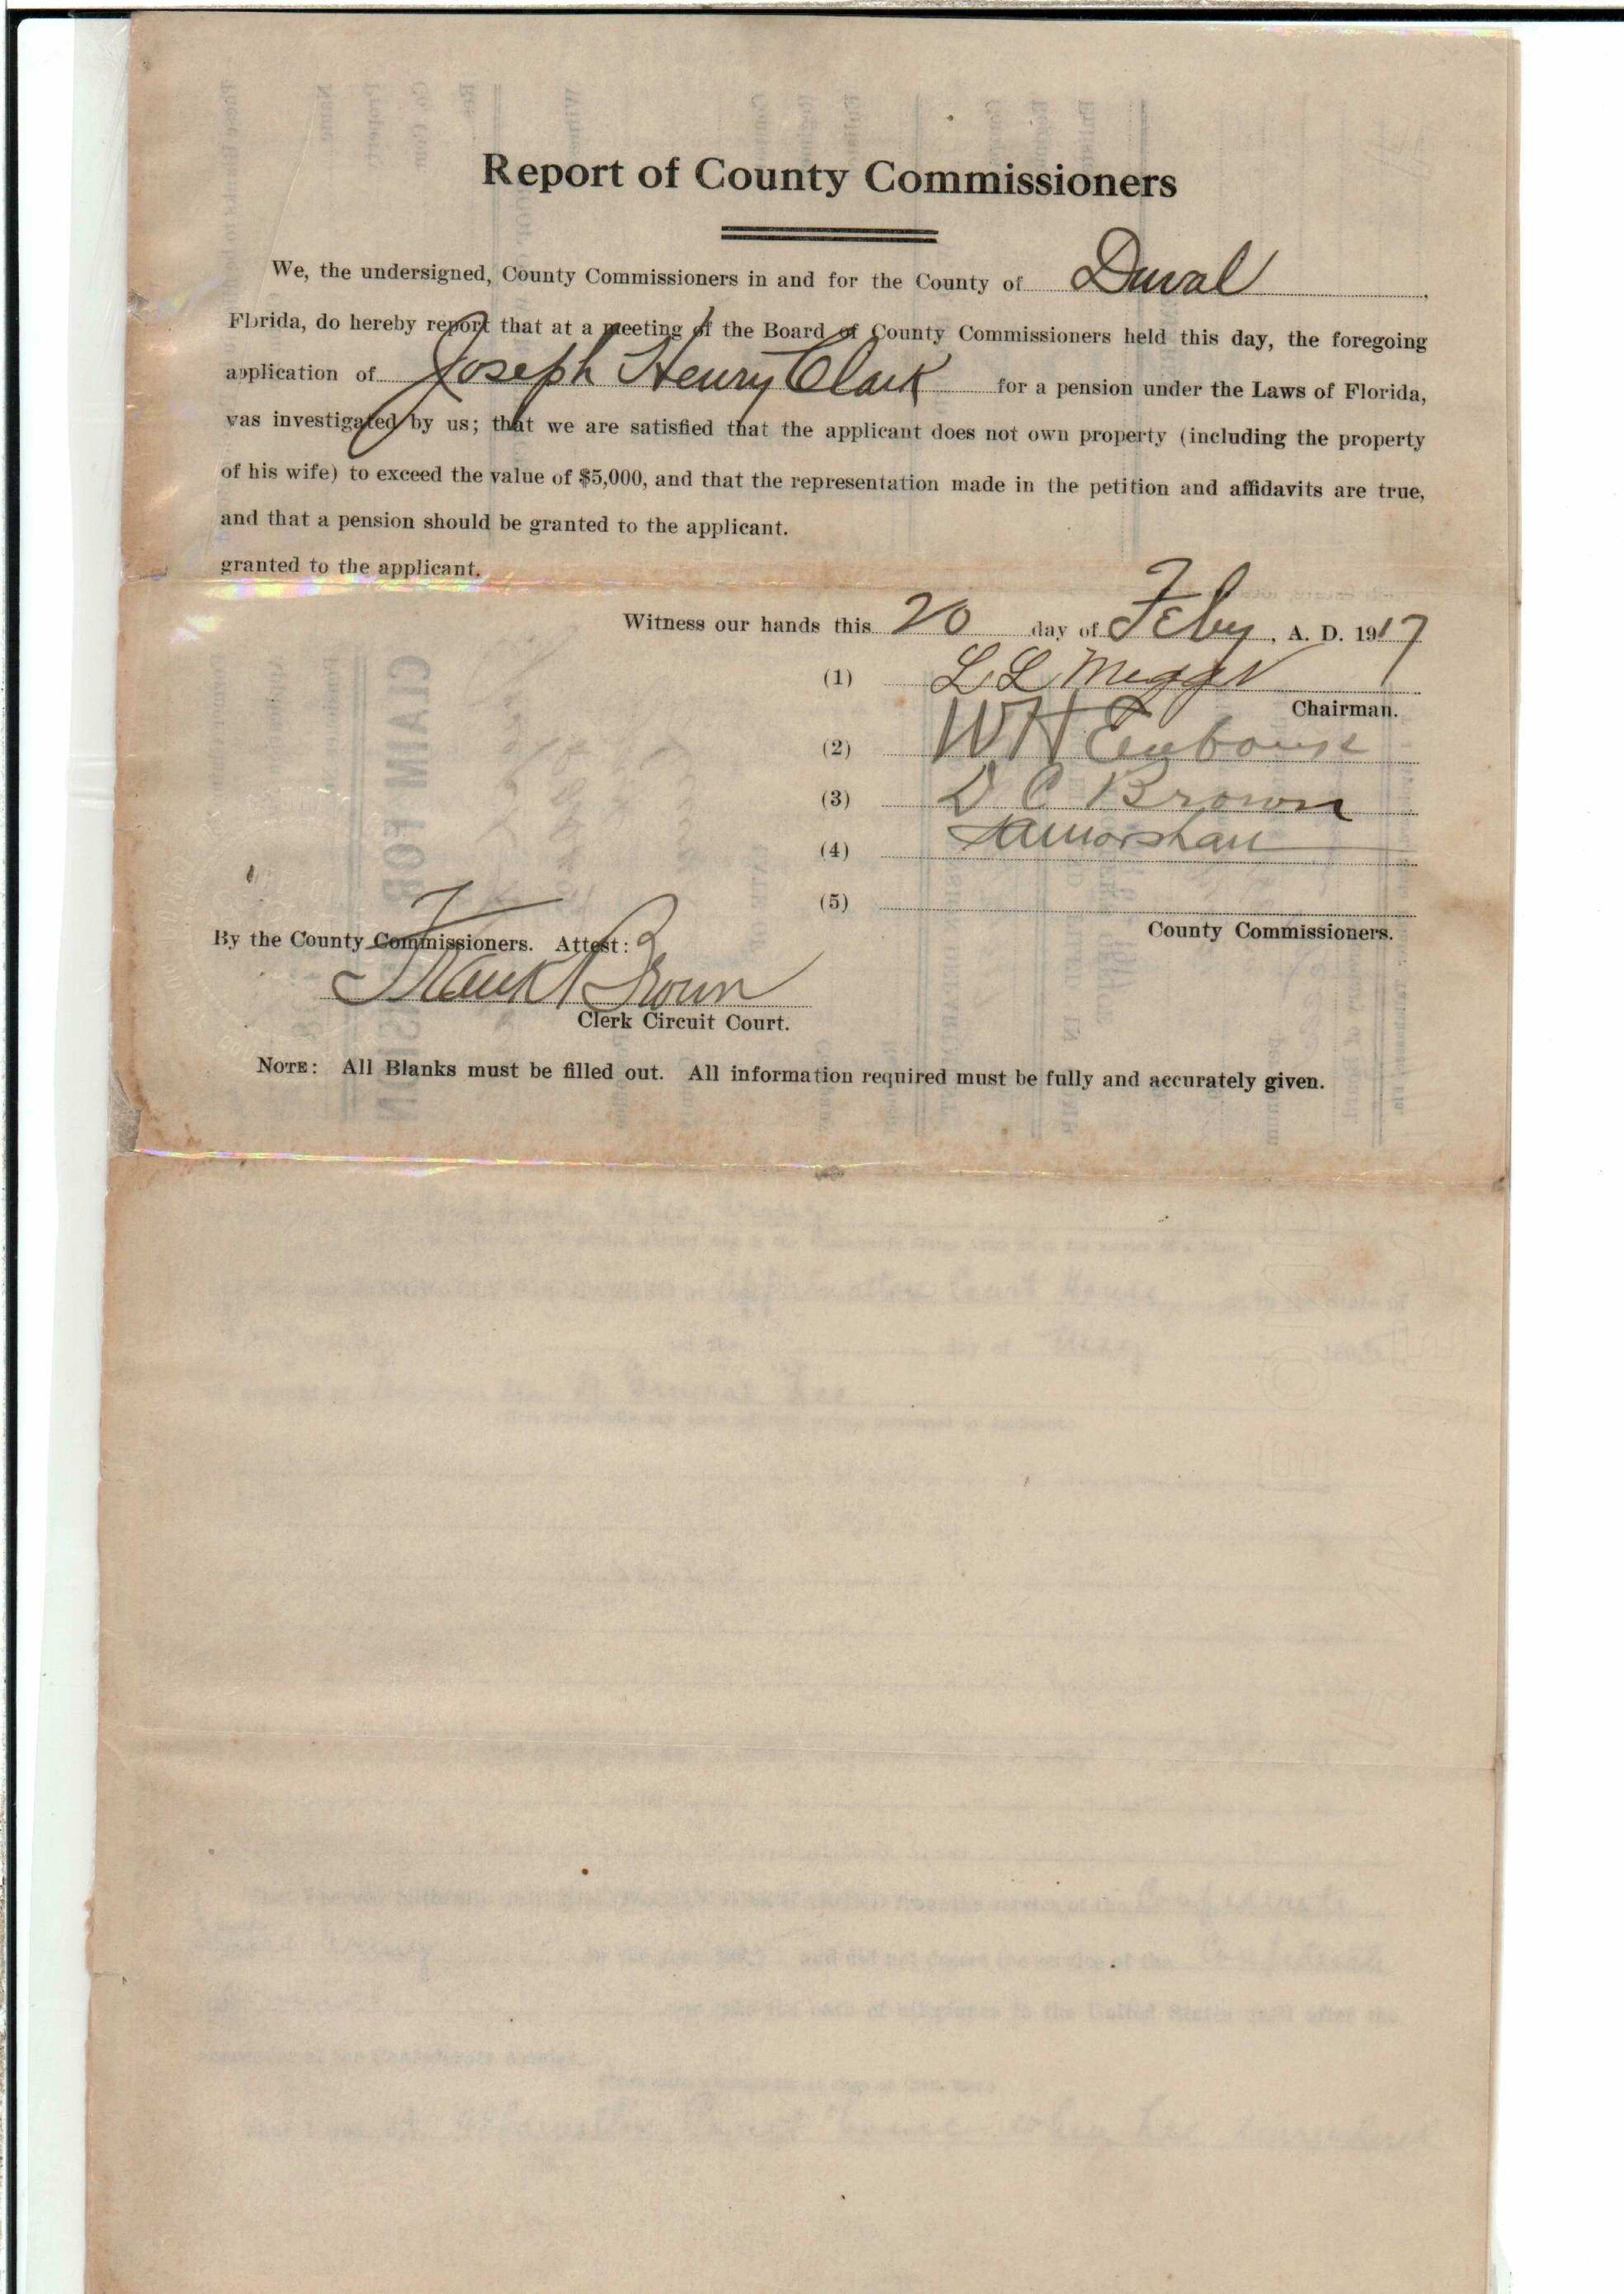 Report of County Commissioners
We, the undersigned, County Commissioners in and for the County of Duval,
Florida, do hereby report that at a meeting of the Board of County Commissioners held this day, the foregoing
application of Joseph Henry Clark for a pension under the Laws of Florida,
was investigated by us; that we are satisfied that the applicant does not own property (including the property
of his wife) to exceed the value of $5,000, and that the representation made in the petition and affidavits are true,
and that a pension should be granted to the applicant.
granted to the applicant.
Witness our hands this 20 day of Feby, A. D. 1917
(1) L L Meggs
Chairman.
(2) W H
(3) D C Brown
(4)
(5)
County Commissioners.
By the County Commissioners. Attest:
Frank Brown
Clerk Circuit Court.
NOTE: All Blanks must be filled out. All information required must be fully and accurately given.